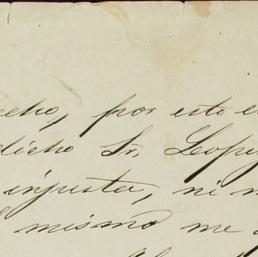 echo, por esto e
dicho Sr. Lope
injusta, ni
mismo me